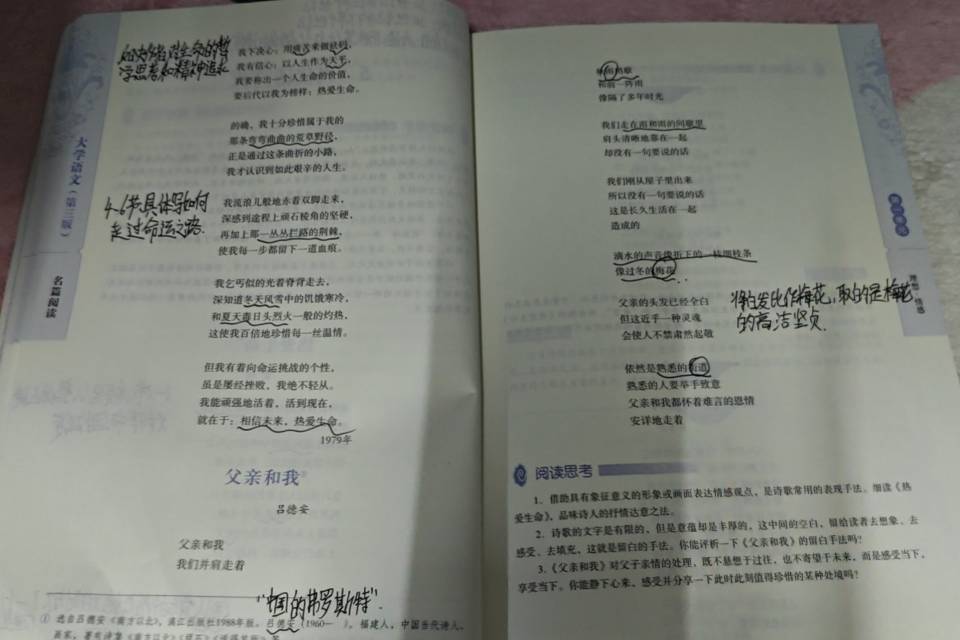 起决作者对生命的哲
学思考和精神追求
我下决心：用痛苦来做砝码，
我有信心：以人生作为天平，
我要称出一个人生命的价值，
要后代以我为榜样：热爱生命。
的确，我十分珍惜属于我的
那条弯弯曲曲的荒草野径，
正是通过这条曲折的小路，
我才认识到如此艰辛的人生。
4-6节具体写如何
走过命运之路.
我流浪儿般地赤着双脚走来，
深感到途程上顽石棱角的坚硬，
再加上那一丛丛拦路的荆棘，
使我每一步都留下一道血痕。
我乞丐似的光着脊背走去，
深知道冬天风雪中的饥饿寒冷，
和夏天毒日头烈火一般的灼热，
这使我百倍地珍惜每一丝温情。
但我有着向命运挑战的个性，
虽是屡经挫败，我绝不轻从。
我能顽强地活着，活到现在，
就在于：相信未来，热爱生命。
1979年
大学语文（第三版）
名篇阅读
父亲和我
吕德安
父亲和我
我们并肩走着
"中国的弗罗斯特".
① 选自吕德安《南方以北》，漓江出版社1988年版。吕德安（1960— ），福建人，中国当代诗人、
秋雨稍歇
和前一阵雨
像隔了多年时光
我们走在雨和雨的间歇里
肩头清晰地靠在一起
却没有一句要说的话
我们刚从屋子里出来
所以没有一句要说的话
这是长久生活在一起
造成的
滴水的声音像折下的一枝细枝条
像过冬的梅花
父亲的头发已经全白
但这近乎一种灵魂
会使人不禁肃然起敬
将白发比作梅花，取的是梅花
的高洁坚贞.
依然是熟悉的街道
熟悉的人要举手致意
父亲和我都怀着难言的恩情
安详地走着
阅读思考
1. 借助具有象征意义的形象或画面表达情感观点，是诗歌常用的表现手法。细读《热
爱生命》，品味诗人的抒情达意之法。
2. 诗歌的文字是有限的，但是意蕴却是丰厚的，这中间的空白，留给读者去想象、去
感受、去填充，这就是留白的手法。你能评析一下《父亲和我》的留白手法吗？
3.《父亲和我》对父子亲情的处理，既不悬想于过往，也不寄望于未来，而是感受当下，
享受当下。你能静下心来，感受并分享一下此时此刻值得珍惜的某种处境吗？